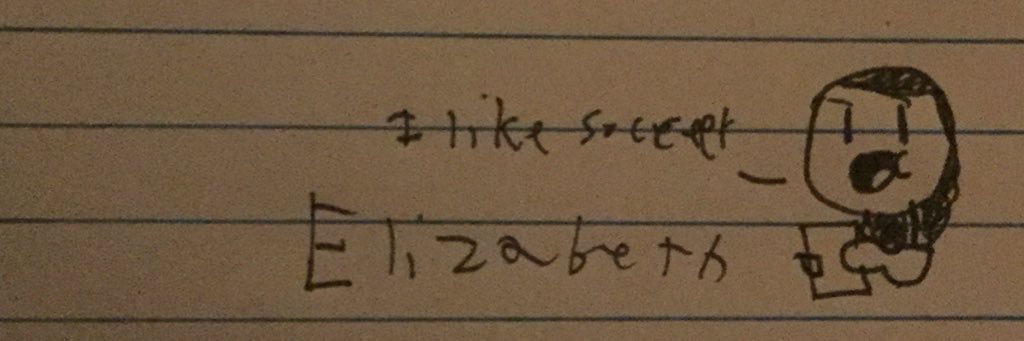 I like soccer
Elizabeth